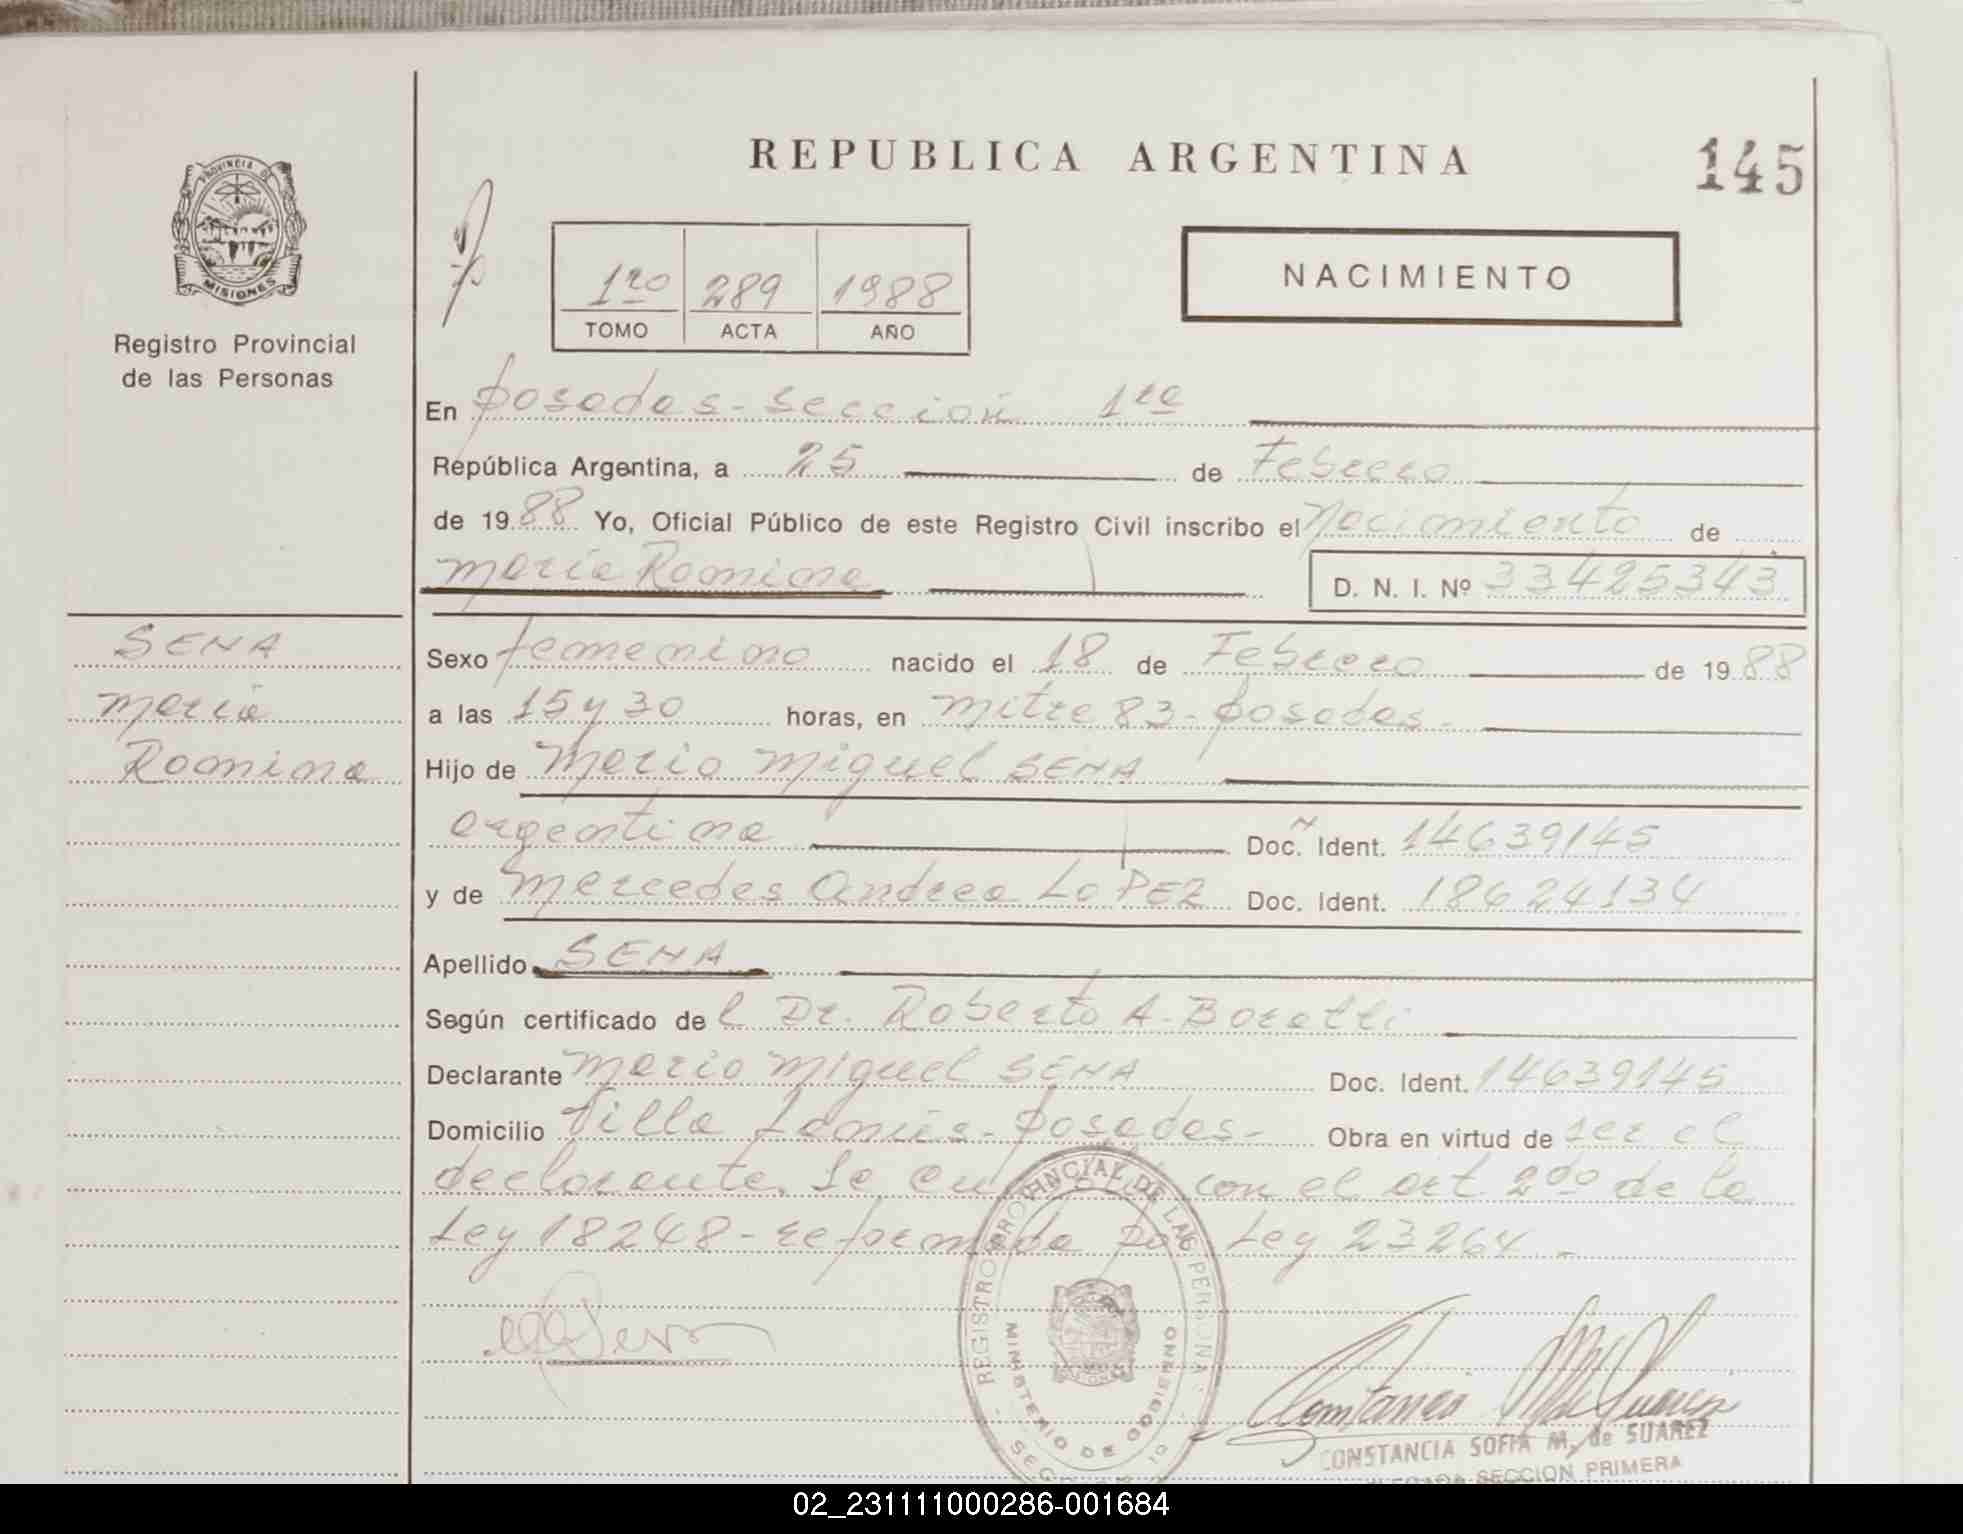 REPUBLICA ARGENTINA
145
PROVINCIA DE
MISIONES
Registro Provincial
de las Personas
1ro 289 1988
TOMO ACTA AÑO
NACIMIENTO
En Posadas - Sección 1ra
República Argentina, a 25 de Febrero
de 1988 Yo, Oficial Público de este Registro Civil inscribo el Nacimiento de
María Romina D. N. I. Nº 33425343
SENA
María
Romina
Sexo femenino nacido el 18 de Febrero de 1988
a las 15 y 30 horas, en Mitre 83 - Posadas -
Hijo de Mario Miguel SENA
argentina Doc. Ident. 14639145
y de Mercedes Andrea LoPEZ Doc. Ident. 18624134
Apellido SENA
Según certificado del Dr. Roberto A. Boretti
Declarante Mario Miguel SENA Doc. Ident. 14639145
Domicilio Villa Lanús - Posadas - Obra en virtud de ser el
declarante. Se con el art 2do de la
Ley 18248 - reformada por Ley 23264 -
REGISTRO PROVINCIAL DE LAS PERSONAS
MINISTERIO DE GOBIERNO
CONSTANCIA SOFIA M. de SUAREZ
SECCION PRIMERA
02_231111000286-001684